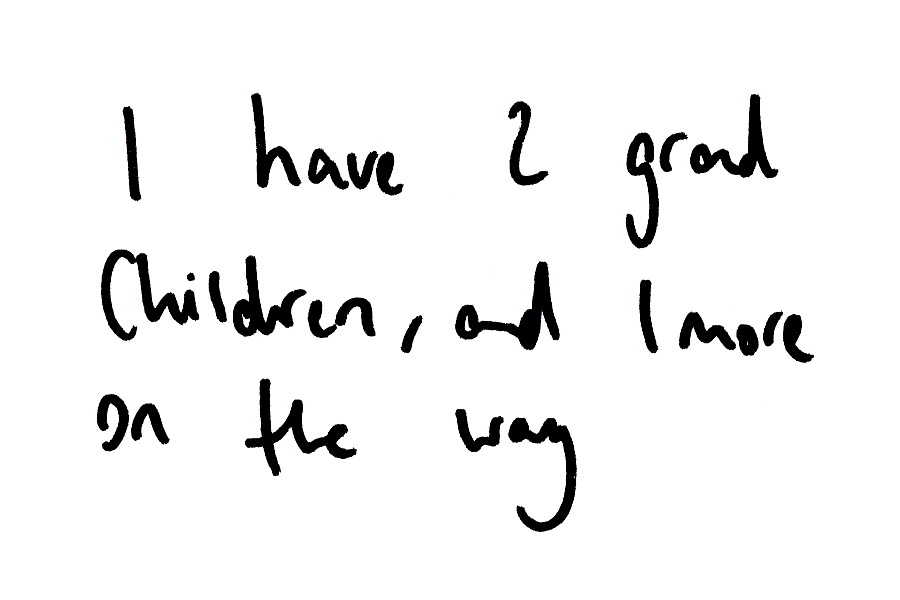 I have 2 grand
Children, and 1 more
on the way